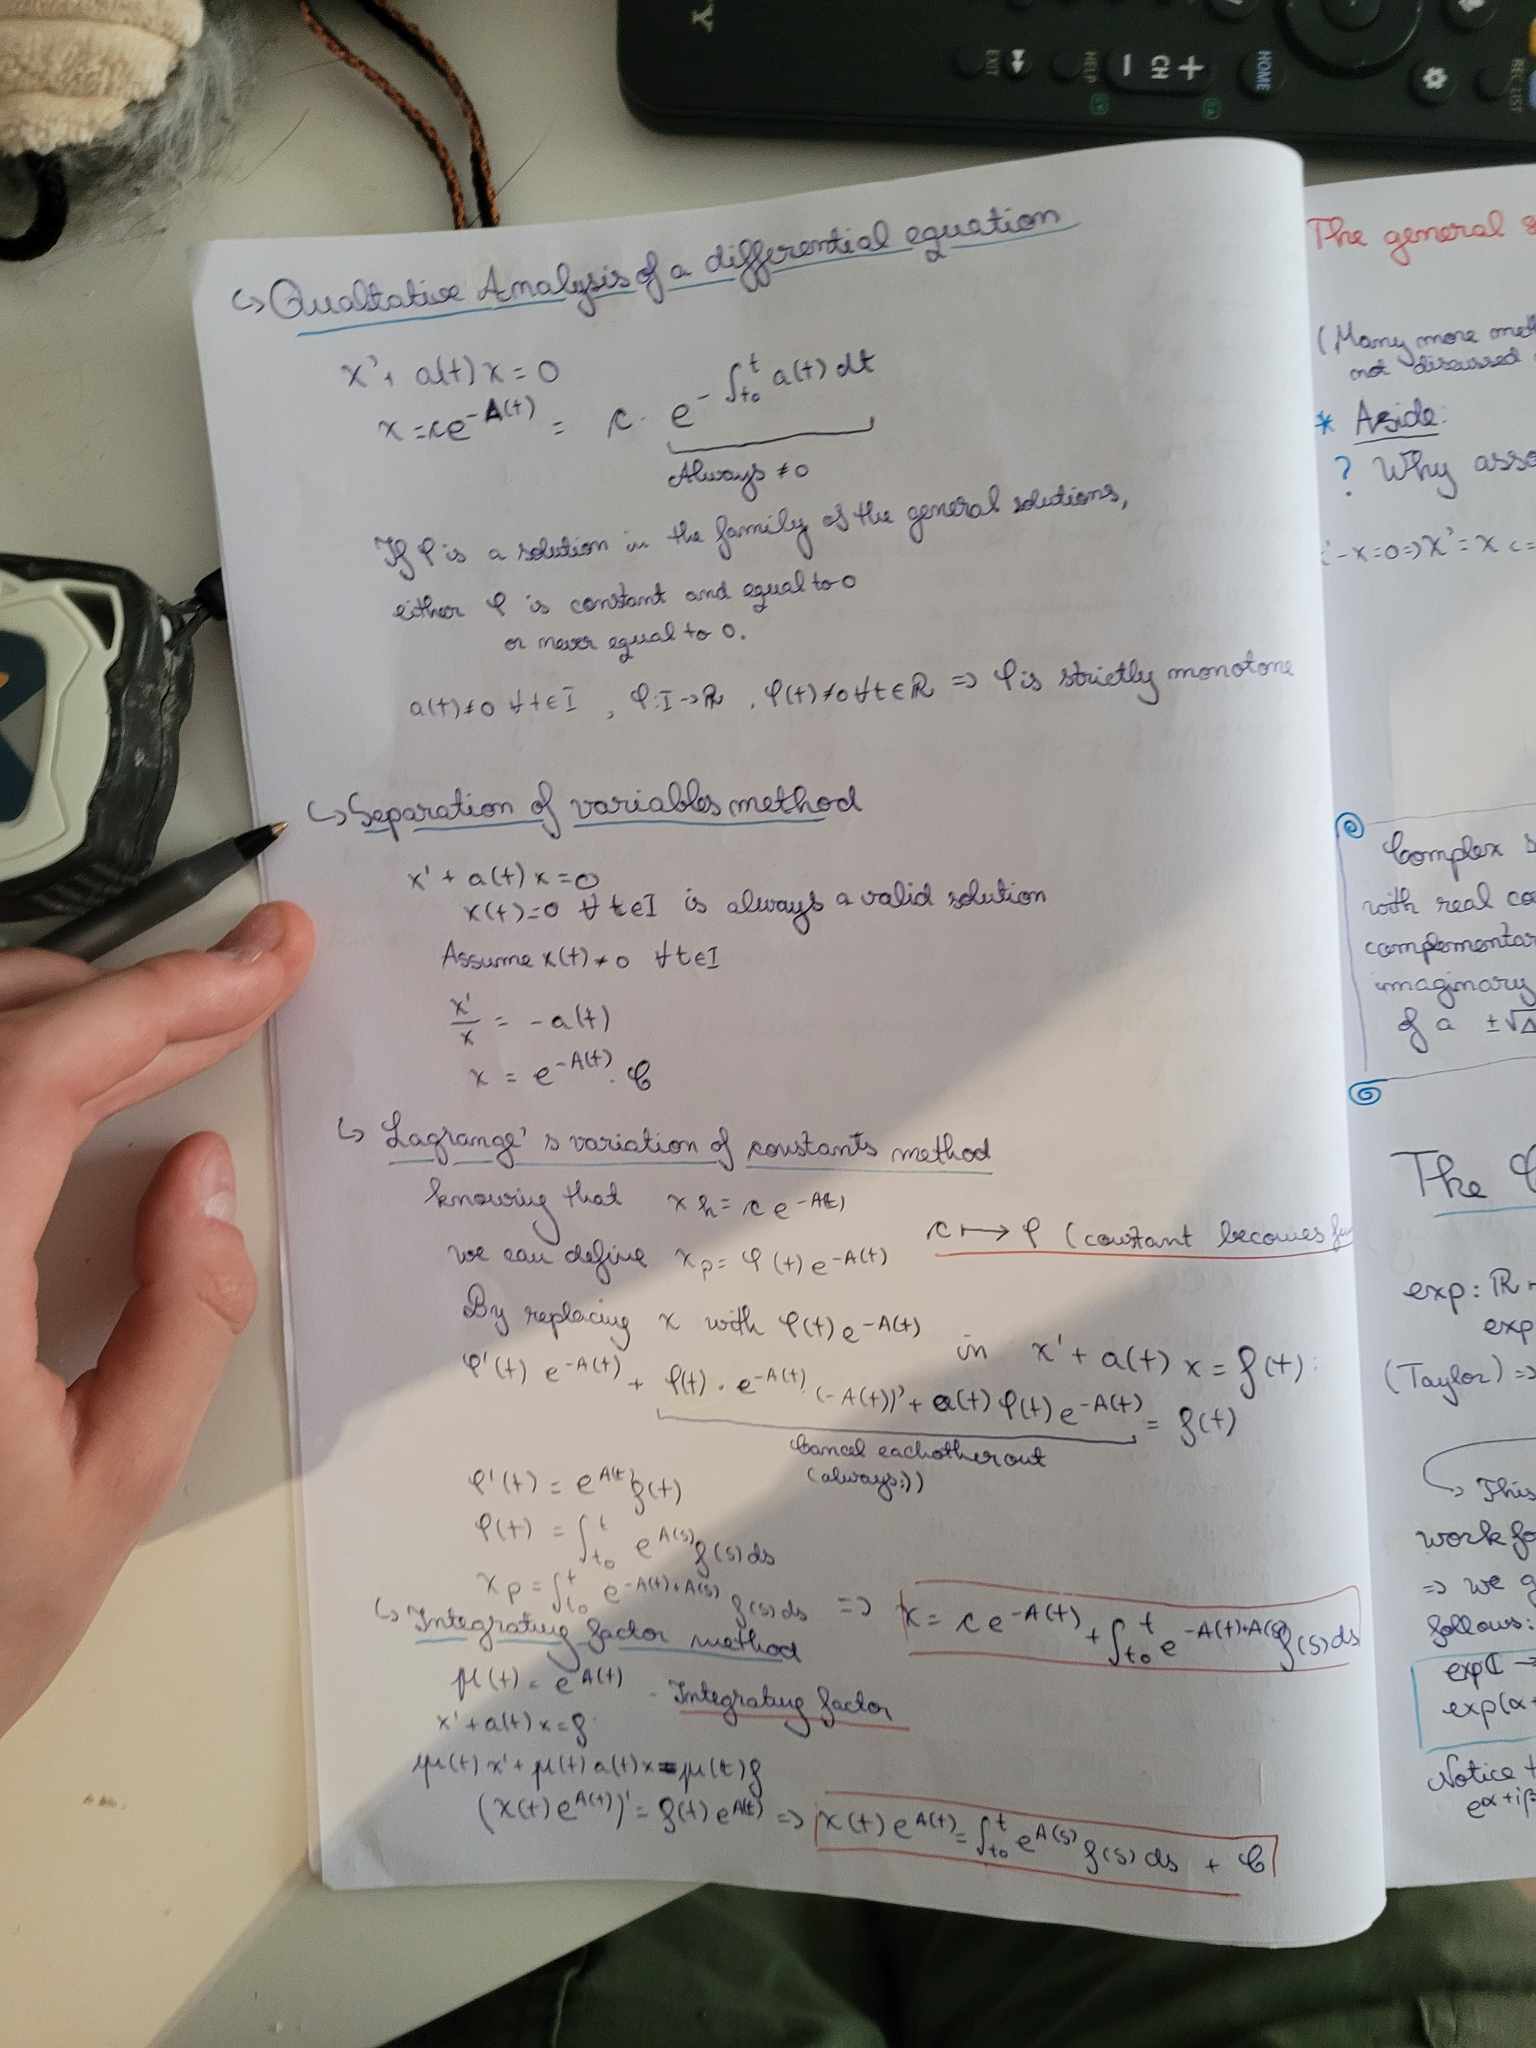 Y
EXIT
HELP
CH
HOME
REC LIST
↪ Qualtative Analysis of a differential equation
x' + a(t) x = 0
x = c e^{-A(t)} = c · e^{-∫_{t0}^{t} a(t) dt}
Always ≠ 0
If φ is a solution in the family of the general solutions,
either φ is constant and equal to 0
or never equal to 0.
a(t) ≠ 0 ∀ t ∈ I , φ: I → ℝ , φ(t) ≠ 0 ∀ t ∈ ℝ => φ is strictly monotone
↪ Separation of variables method
x' + a(t) x = 0
x(t) = 0 ∀ t ∈ I is always a valid solution
Assume x(t) ≠ 0 ∀ t ∈ I
x'/x = - a(t)
x = e^{-A(t)} · C
↪ Lagrange's variation of constants method
knowing that x h = c e^{-A(t)}
we can define x_p = φ(t) e^{-A(t)} c ↦ φ (constant becomes
By replacing x with φ(t) e^{-A(t)} in x' + a(t) x = f(t) :
φ'(t) e^{-A(t)} + φ(t) · e^{-A(t)} · (-A(t))' + a(t) φ(t) e^{-A(t)} = f(t)
Cancel eachother out
(always :))
φ'(t) = e^{A(t)} f(t)
φ(t) = ∫_{t0}^{t} e^{A(s)} f(s) ds
x_p = ∫_{t0}^{t} e^{-A(t)+A(s)} f(s) ds => x = c e^{-A(t)} + ∫_{t0}^{t} e^{-A(t)+A(s)} f(s) ds
↪ Integrating factor method
μ(t) = e^{A(t)} - Integrating factor
x' + a(t) x = f
μ(t) x' + μ(t) a(t) x = μ(t) f
(x(t) e^{A(t)})' = f(t) e^{A(t)} => x(t) e^{A(t)} = ∫_{t0}^{t} e^{A(s)} f(s) ds + C
The general
(Many more
not discussed
* Aside:
? Why
- x = 0 => x' = x
Complex
with real
complementar
imaginary
of a ±√Δ
The
exp: ℝ
exp
(Taylor) =>
↪ This
work
=> we
follows:
exp ℂ →
exp(α +
Notice
e^{α+iβ}